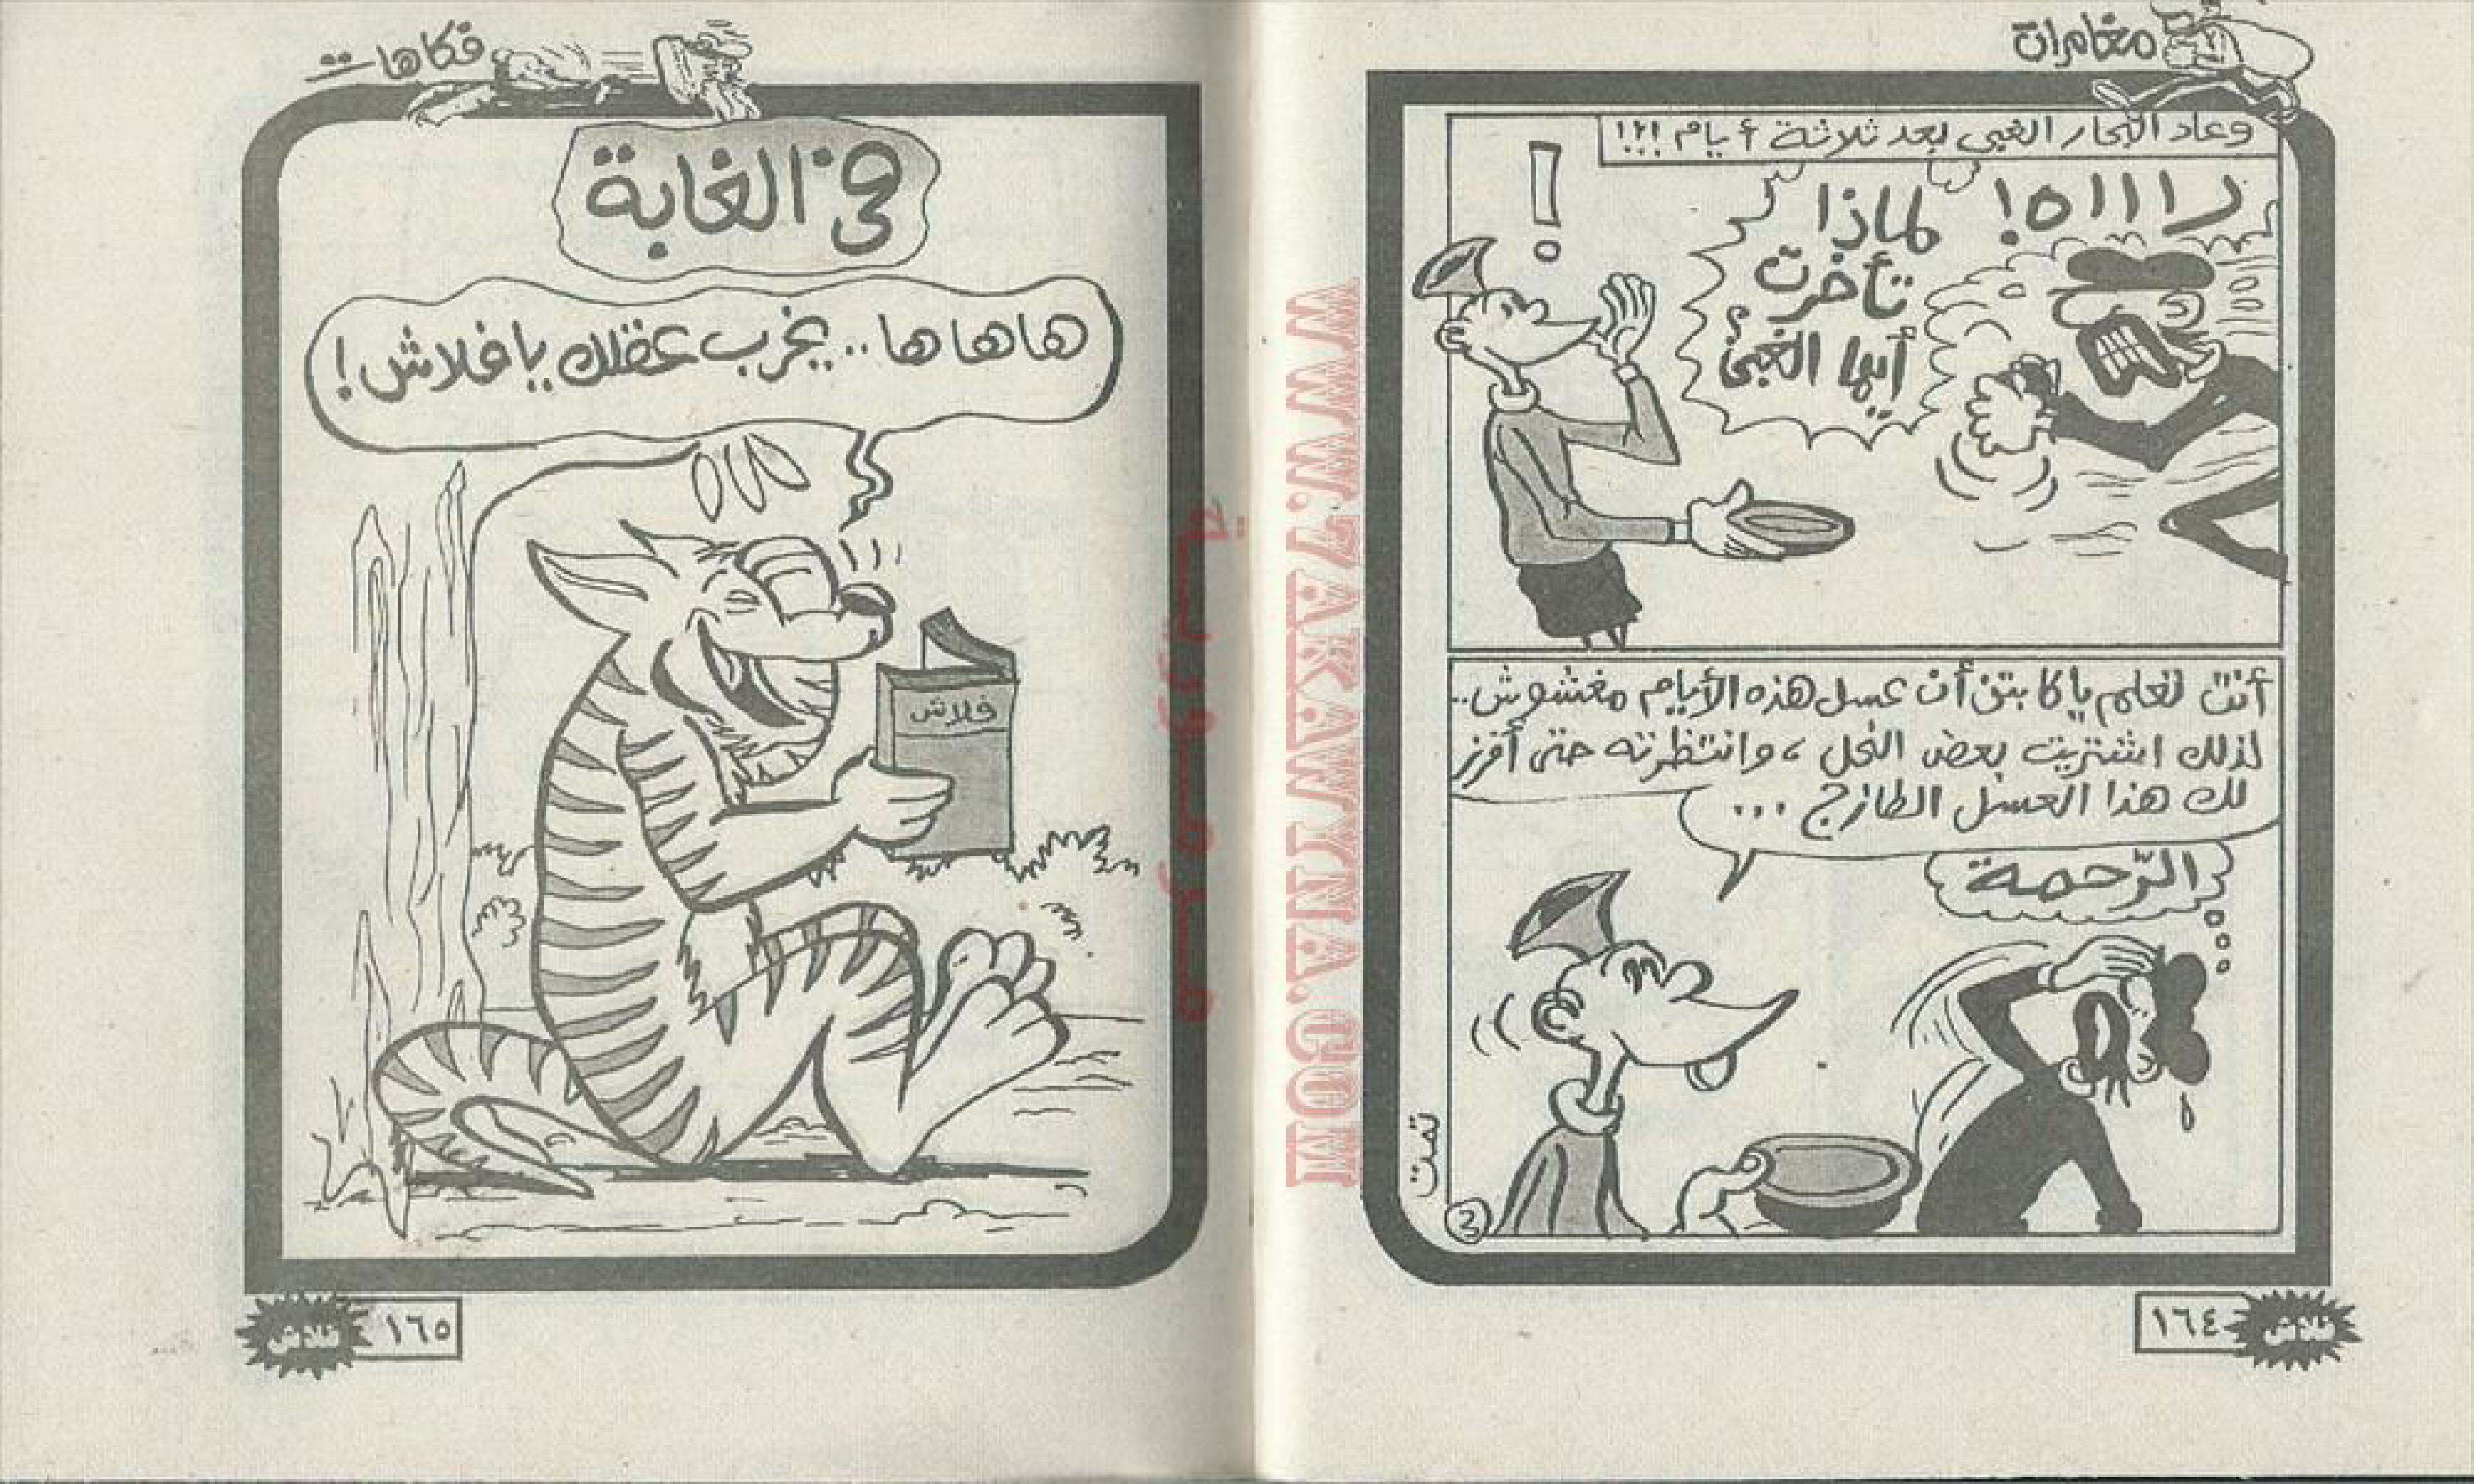 مغامرات
وعاد البحار الغبى بعد ثلاثة أيام !؟!
لماذا
تأخرت
أيها الغبى؟
أنت تعلم يا كابتن أن عسل هذه الأيام مغشوش..
لذلك اشتريت بعض النحل ، وانتظرته حتى أفرز
لك هذا العسل الطازج ...
الرّحمة
تمت
١٦٤
فلاش
WWW.7AKAWYNA.COM
فكاهات
فى الغابة
هاهاها.. يخرب عقلك يا فلاش !
فلاش
١٦٥
فلاش